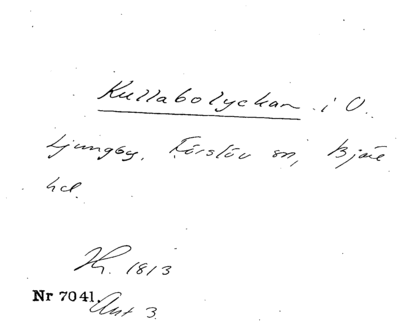 Kullabolyckan i Ö.
Ljungby, Förslöv sn, Bjäre
hd.
Hr. 1813
Nr 7041.
Akt 3.